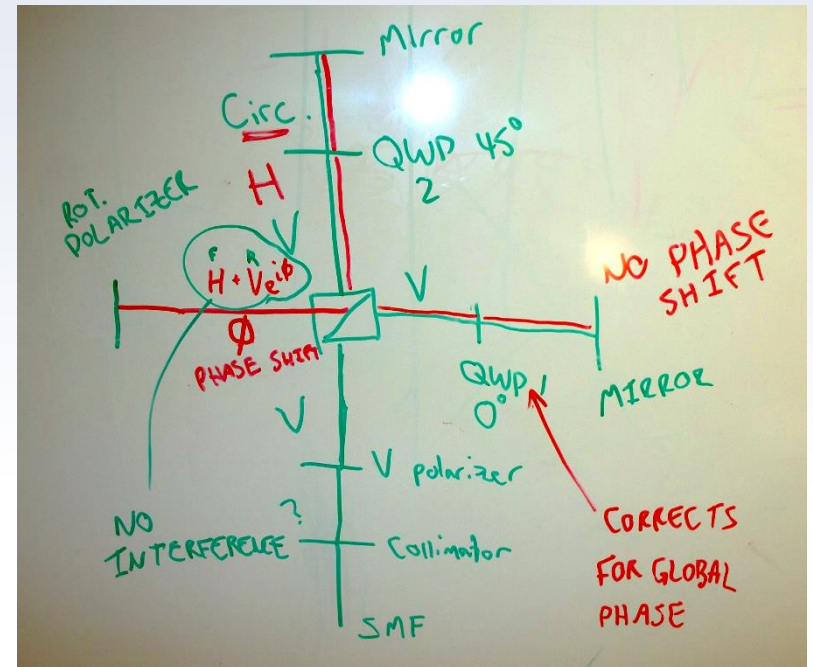 Mirror
Circ.
QWP 45°
2
H
ROT.
POLARIZER
V
F R
H + Ve^iϕ
V
NO PHASE
SHIFT
Ø
PHASE SHIFT
QWP 1
0°
MIRROR
V
V polarizer
NO
INTERFERENCE ?
Collimator
CORRECTS
FOR GLOBAL
PHASE
SMF